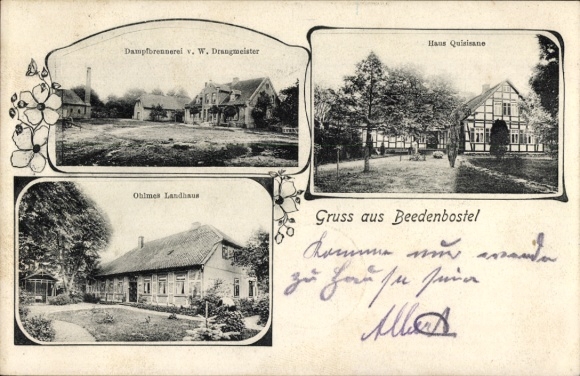 Dampfbrennerei v. W. Drangmeister
Haus Quisisane
Ohlmes Landhaus
Gruss aus Beedenbostel
Komme nur
zu Hause sein
Albert